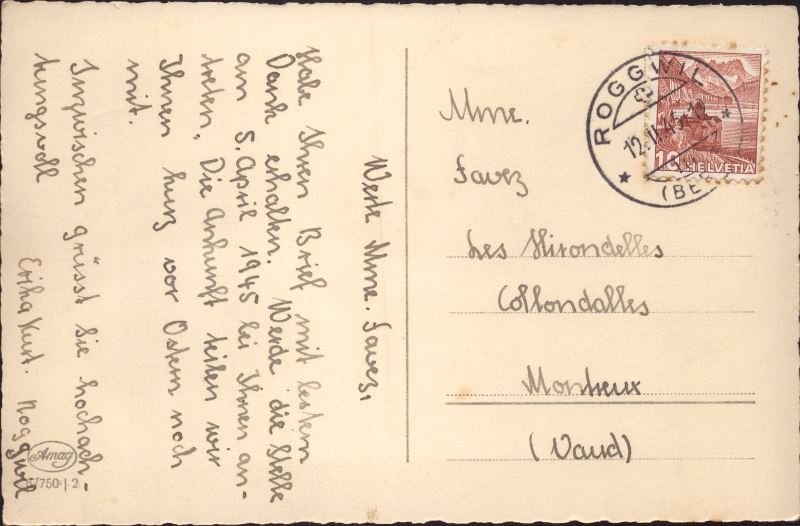 Werte Mme. Favez,
Habe Ihren Brief mit bestem
Dank erhalten. Werde die Stelle
am 5. April 1945 bei Ihnen an-
treten. Die Ankunft teilen wir
Ihnen kurz vor Ostern noch
mit.
Inzwischen grüsst Sie hochach-
tungsvoll
Erika Kurt. Roggwil
Amag
750 | 2
Mme.
Favez
Les Hirondelles
Collondalles
Montreux
(Vaud)
ROGGWIL
12. II. 45
(BE
10 HELVETIA